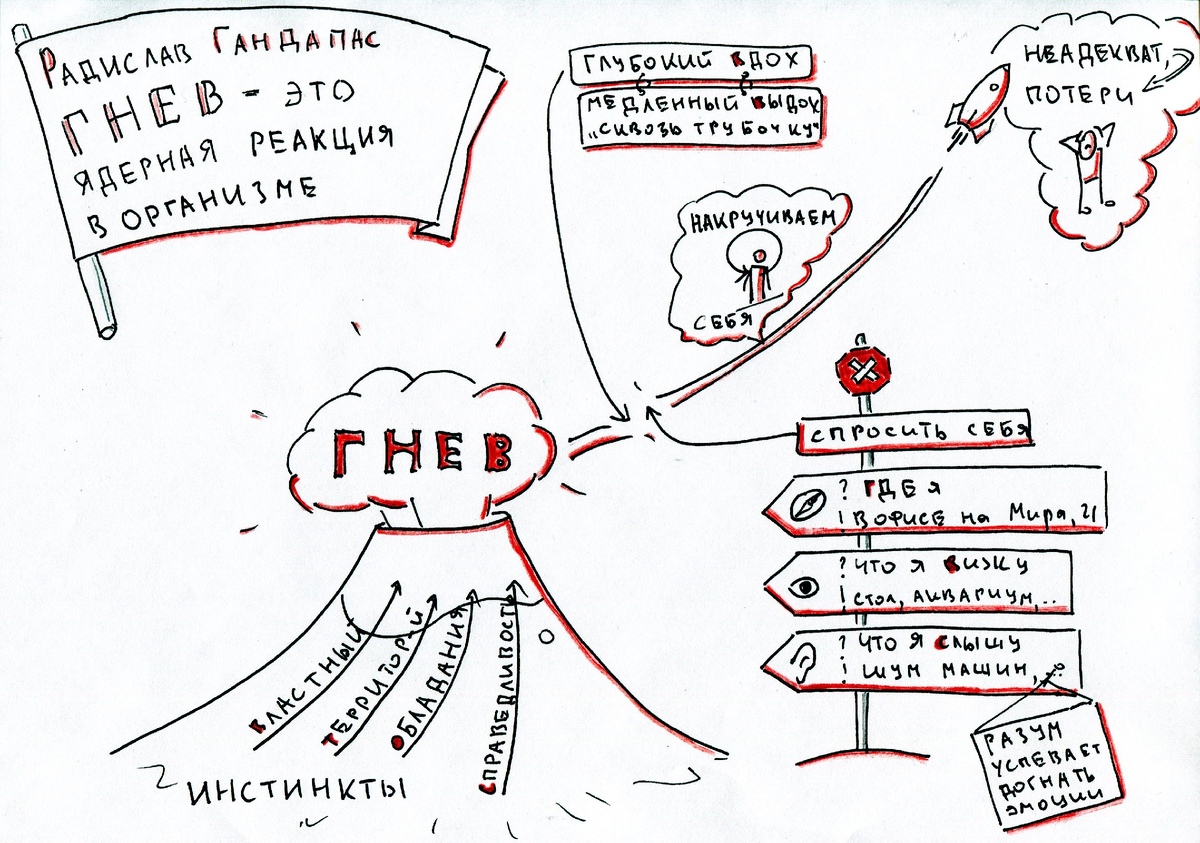 РАДИСЛАВ ГАНДАПАС
ГНЕВ - ЭТО
ЯДЕРНАЯ РЕАКЦИЯ
В ОРГАНИЗМЕ
ГЛУБОКИЙ ВДОХ
МЕДЛЕННЫЙ ВЫДОХ
„СКВОЗЬ ТРУБОЧКУ“
НЕАДЕКВАТ,
ПОТЕРИ
НАКРУЧИВАЕМ
СЕБЯ
ГНЕВ
СПРОСИТЬ СЕБЯ
? ГДЕ Я
! В ОФИСЕ на Мира, 21
? ЧТО Я ВИЖУ
! СТОЛ, АКВАРИУМ,..
? ЧТО Я СЛЫШУ
! ШУМ МАШИН,..
РАЗУМ
УСПЕВАЕТ
ДОГНАТЬ
ЭМОЦИИ
ВЛАСТНЫЙ
ТЕРРИТОРИЙ
ОБЛАДАНИЯ
СПРАВЕДЛИВОСТЬ
ИНСТИНКТЫ